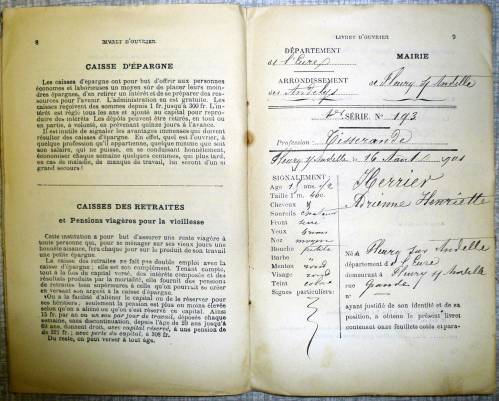 8 LIVRET D'OUVRIER
CAISSE D'ÉPARGNE
Les caisses d'épargne ont pour but d'offrir aux personnes
économes et laborieuses un moyen sûr de placer leurs moin-
dres épargnes, d'en retirer un intérêt et de se préparer des res-
sources pour l'avenir. L'administration en est gratuite. Les
caisses reçoivent des sommes depuis 1 fr. jusqu'à 300 fr. L'in-
térêt est réglé tous les ans et ajouté au capital pour repro-
duire des intérêts. Les dépôts peuvent être retirés, en tout ou
en partie, à volonté, en prévenant quinze jours à l'avance.
Il est inutile de signaler les avantages immenses qui doivent
résulter des caisses d'épargne. En effet, quel est l'ouvrier, à
quelque profession qu'il appartienne, quelque minime que soit
son salaire, qui ne puisse, en se conduisant honnêtement,
économiser chaque semaine quelques centimes, qui plus tard,
en cas de maladie, de manque de travail, lui seront d'un si
grand secours!
CAISSES DES RETRAITES
et Pensions viagères pour la vieillesse
Cette institution a pour but d'assurer une rente viagère à
toute personne qui, pour se ménager sur ses vieux jours une
honnête aisance, fera chaque jour sur le produit de son travail
une petite épargne.
La caisse des retraites ne fait pas double emploi avec la
caisse d'épargne; elle en est le complément. Tenant compte,
tout à la fois du capital versé, des intérêts composés et des
résultats produits par la mortalité, elle fournit des pensions
de retraites bien supérieures à celles qu'on pourrait se créer
en versant son argent à la caisse d'épargne.
On a la faculté d'aliéner le capital ou de le réserver pour
ses héritiers; seulement la pension est plus ou moins élevée
selon qu'on a aliéné ou qu'on s'est réservé ce capital. Ainsi
15 fr. par an ou un sou par jour de travail, déposés chaque
semaine, sans discontinuation, depuis l'âge de 20 ans jusqu'à
65 ans, donnent droit, avec capital réservé, à une pension de
221 fr.; avec perte du capital, à 308 fr.
Du reste, on peut verser à tout âge.
LIVRET D'OUVRIER 9
DÉPARTEMENT
de l'Eure
ARRONDISSEMENT
des Andelys
MAIRIE
de Fleury s/ Andelle
SÉRIE. N° 193
Profession: Tisserande
Fleury s/ Andelle 16 Août 1901
SIGNALEMENT:
Age
Taille 1m
Cheveux
Sourcils
Front
Yeux
Nez moyen
Bouche petite
Barbe
Menton rond
Visage rond
Teint
Signes particuliers:
Herrier
Adrienne Henriette
Né à Fleury sur Andelle
département d l'Eure
demeurant à Fleury s/ Andelle
rue Grande
N°
ayant justifié de son identité et de sa
position, a obtenu le présent livret
contenant onze feuillets cotés et para-